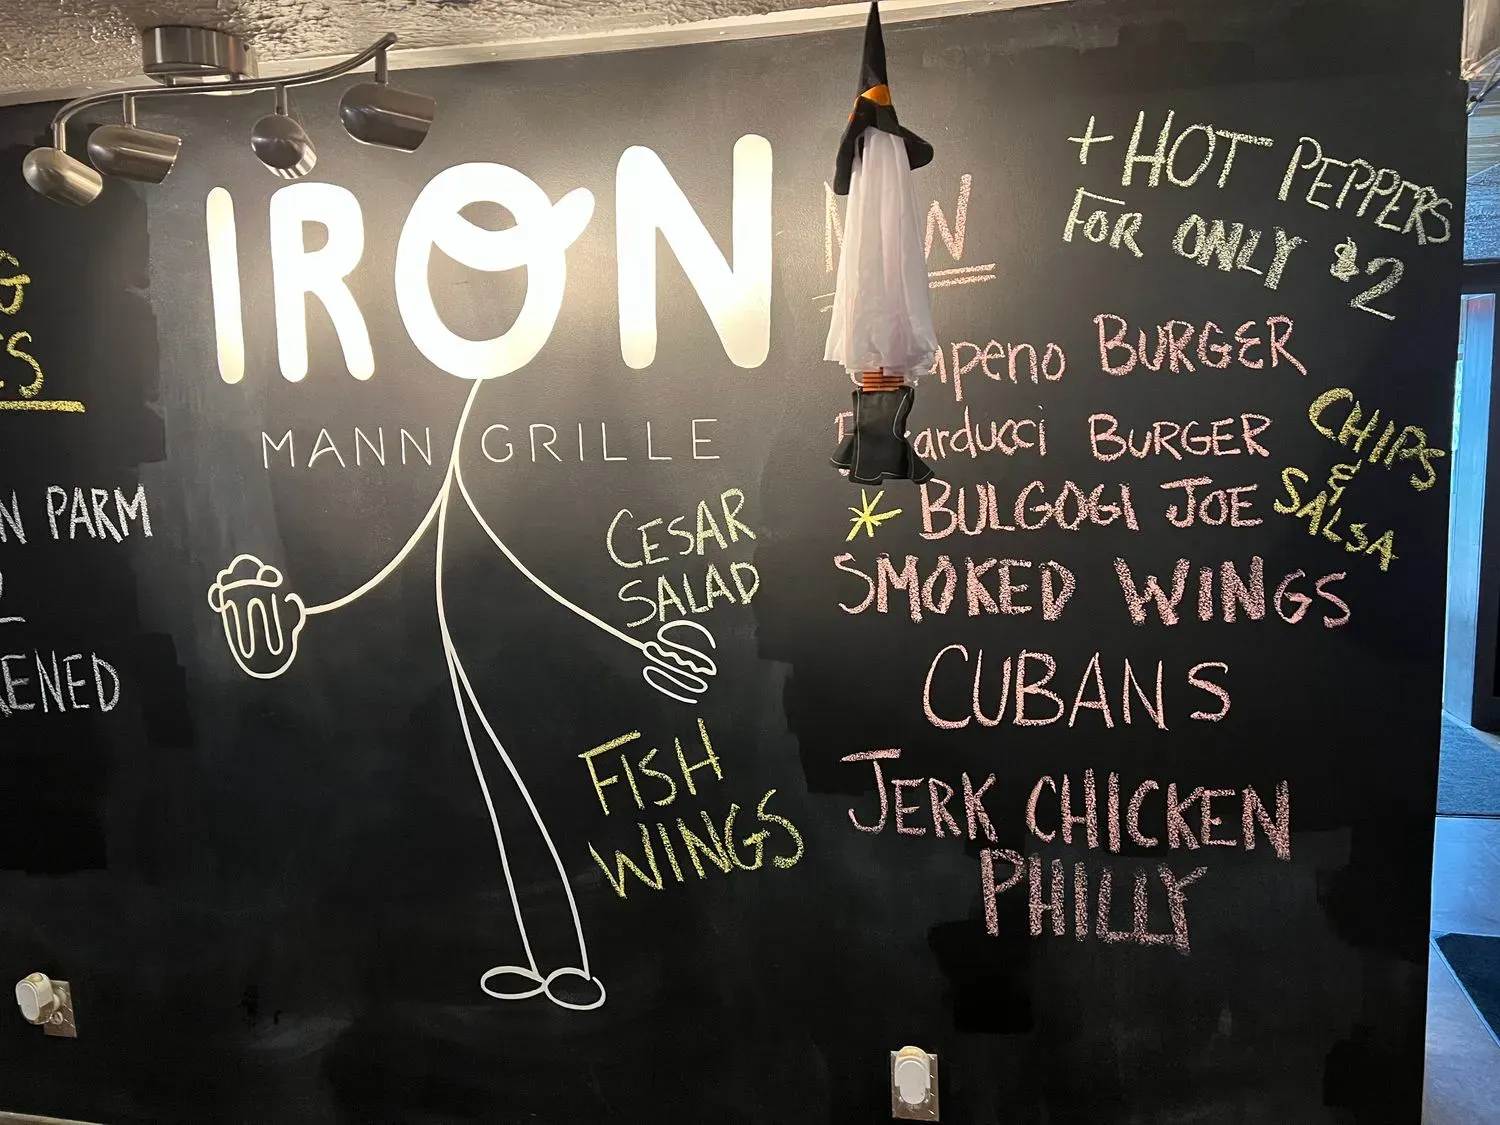 IRON
MANN GRILLE
N PARM
ENED
CESAR
SALAD
FISH
WINGS
+ HOT PEPPERS
FOR ONLY $2
BURGER
BURGER
BULGOGI JOE
SMOKED WINGS
CUBANS
JERK CHICKEN
PHILLY
CHIPS
&
SALSA